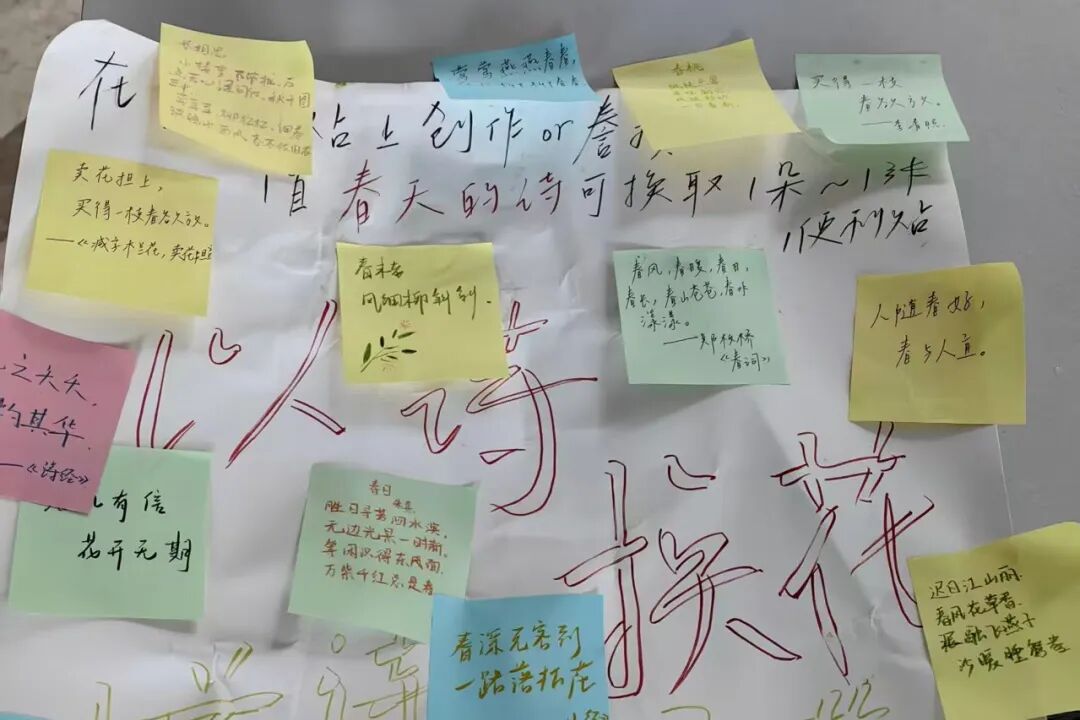 在
贴上创作or
1首春天的诗可换取1朵~1张
便利贴
以诗
换花
长相思
莺莺燕燕春春
春桃
买得一枝
春欲放。
——李清照
卖花担上，
买得一枝春欲放。
——《减字木兰花，卖花担
春未老
风细柳斜斜.
春风，春暖，春日，
春长，春山苍苍，春水
漾漾。
——郑板桥
《春词》
人随春好，
春与人宜。
之夭夭，
灼其华.
——《诗经》
有信
花开无期
春日
朱熹
胜日寻芳泗水滨，
无边光景一时新。
等闲识得东风面，
万紫千红总是春
春深无客到
一路落松花
迟日江山丽
春风花草香.
泥融飞燕子
沙暖睡鸳鸯